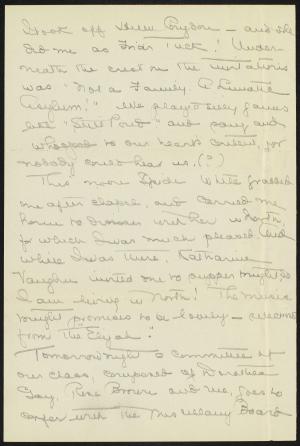 I took off Helen Brydon - and she
did me as Friar Tuck! Under-
neath the crest on the invitations
was "Not a Family. A Lunatic
Asylum!" We played silly games
like "Still Pond" and sang and
whooped to our heart's content, for
nobody could hear us. (?)
This noon White grabbed
me after chapel, and carried me
home to dinner with her in North,
for which I was much pleased. And
while I was there, Katharine
Vaughn invited me to supper tonight so
I am living in North! The music
tonight promises to be lovely - selections
from the "Elijah".
Tomorrow night a committee of
our class, composed of Dorothea
Gay, Rene Brown and me, goes to
confer with the Miscellany Board